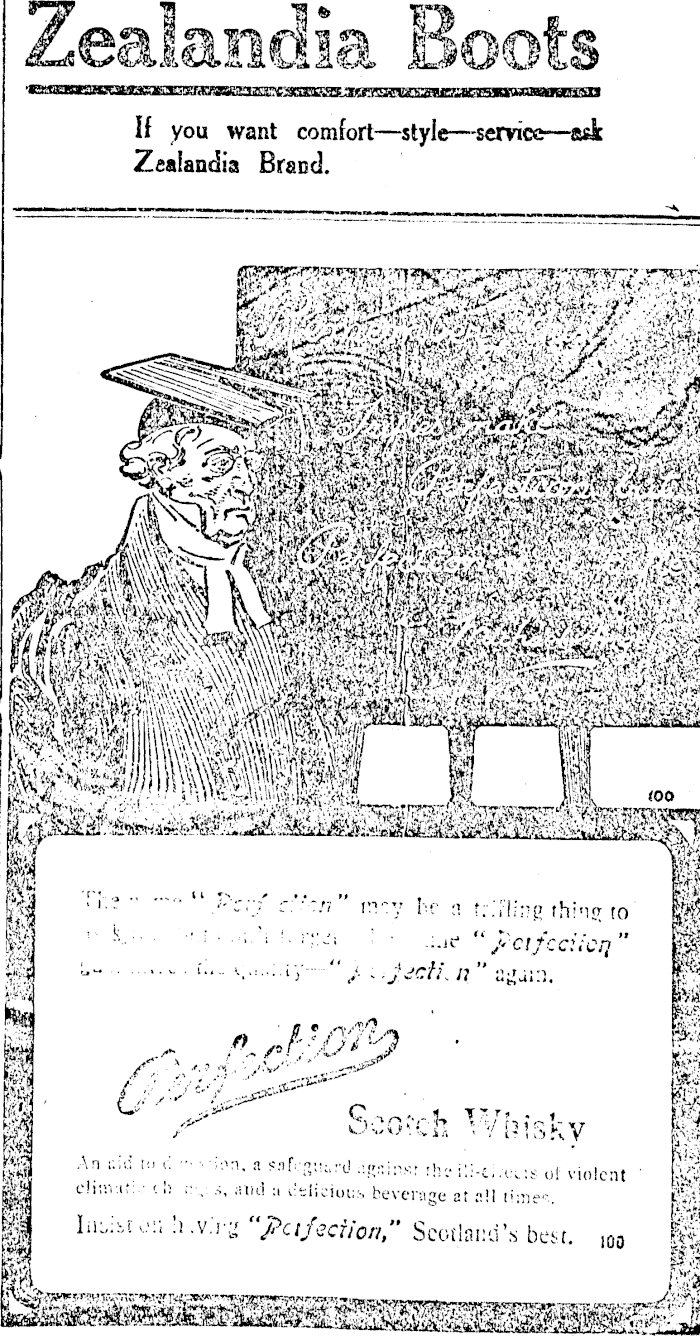 Zealandia Boots
If you want comfort—style—service—ask
Zealandia Brand.
Trifles make
Perfection but
Perfection
100
The name "Perfection" may be a trifling thing to
"Perfection"
the quality—"Perfection" again.
Perfection
Scotch Whisky
An aid to digestion, a safeguard against the ill-effects of violent
climatic changes, and a delicious beverage at all times.
Insist on having "Perfection," Scotland's best. 100